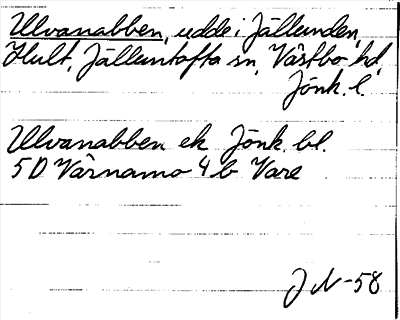 Ulvanabben, udde i Jällunden,
Hult, Jälluntofta sn, Västbo hd,
Jönk. l.
Ulvanabben ek Jönk. bl.
5D Värnamo 4 b Vare
JN-58